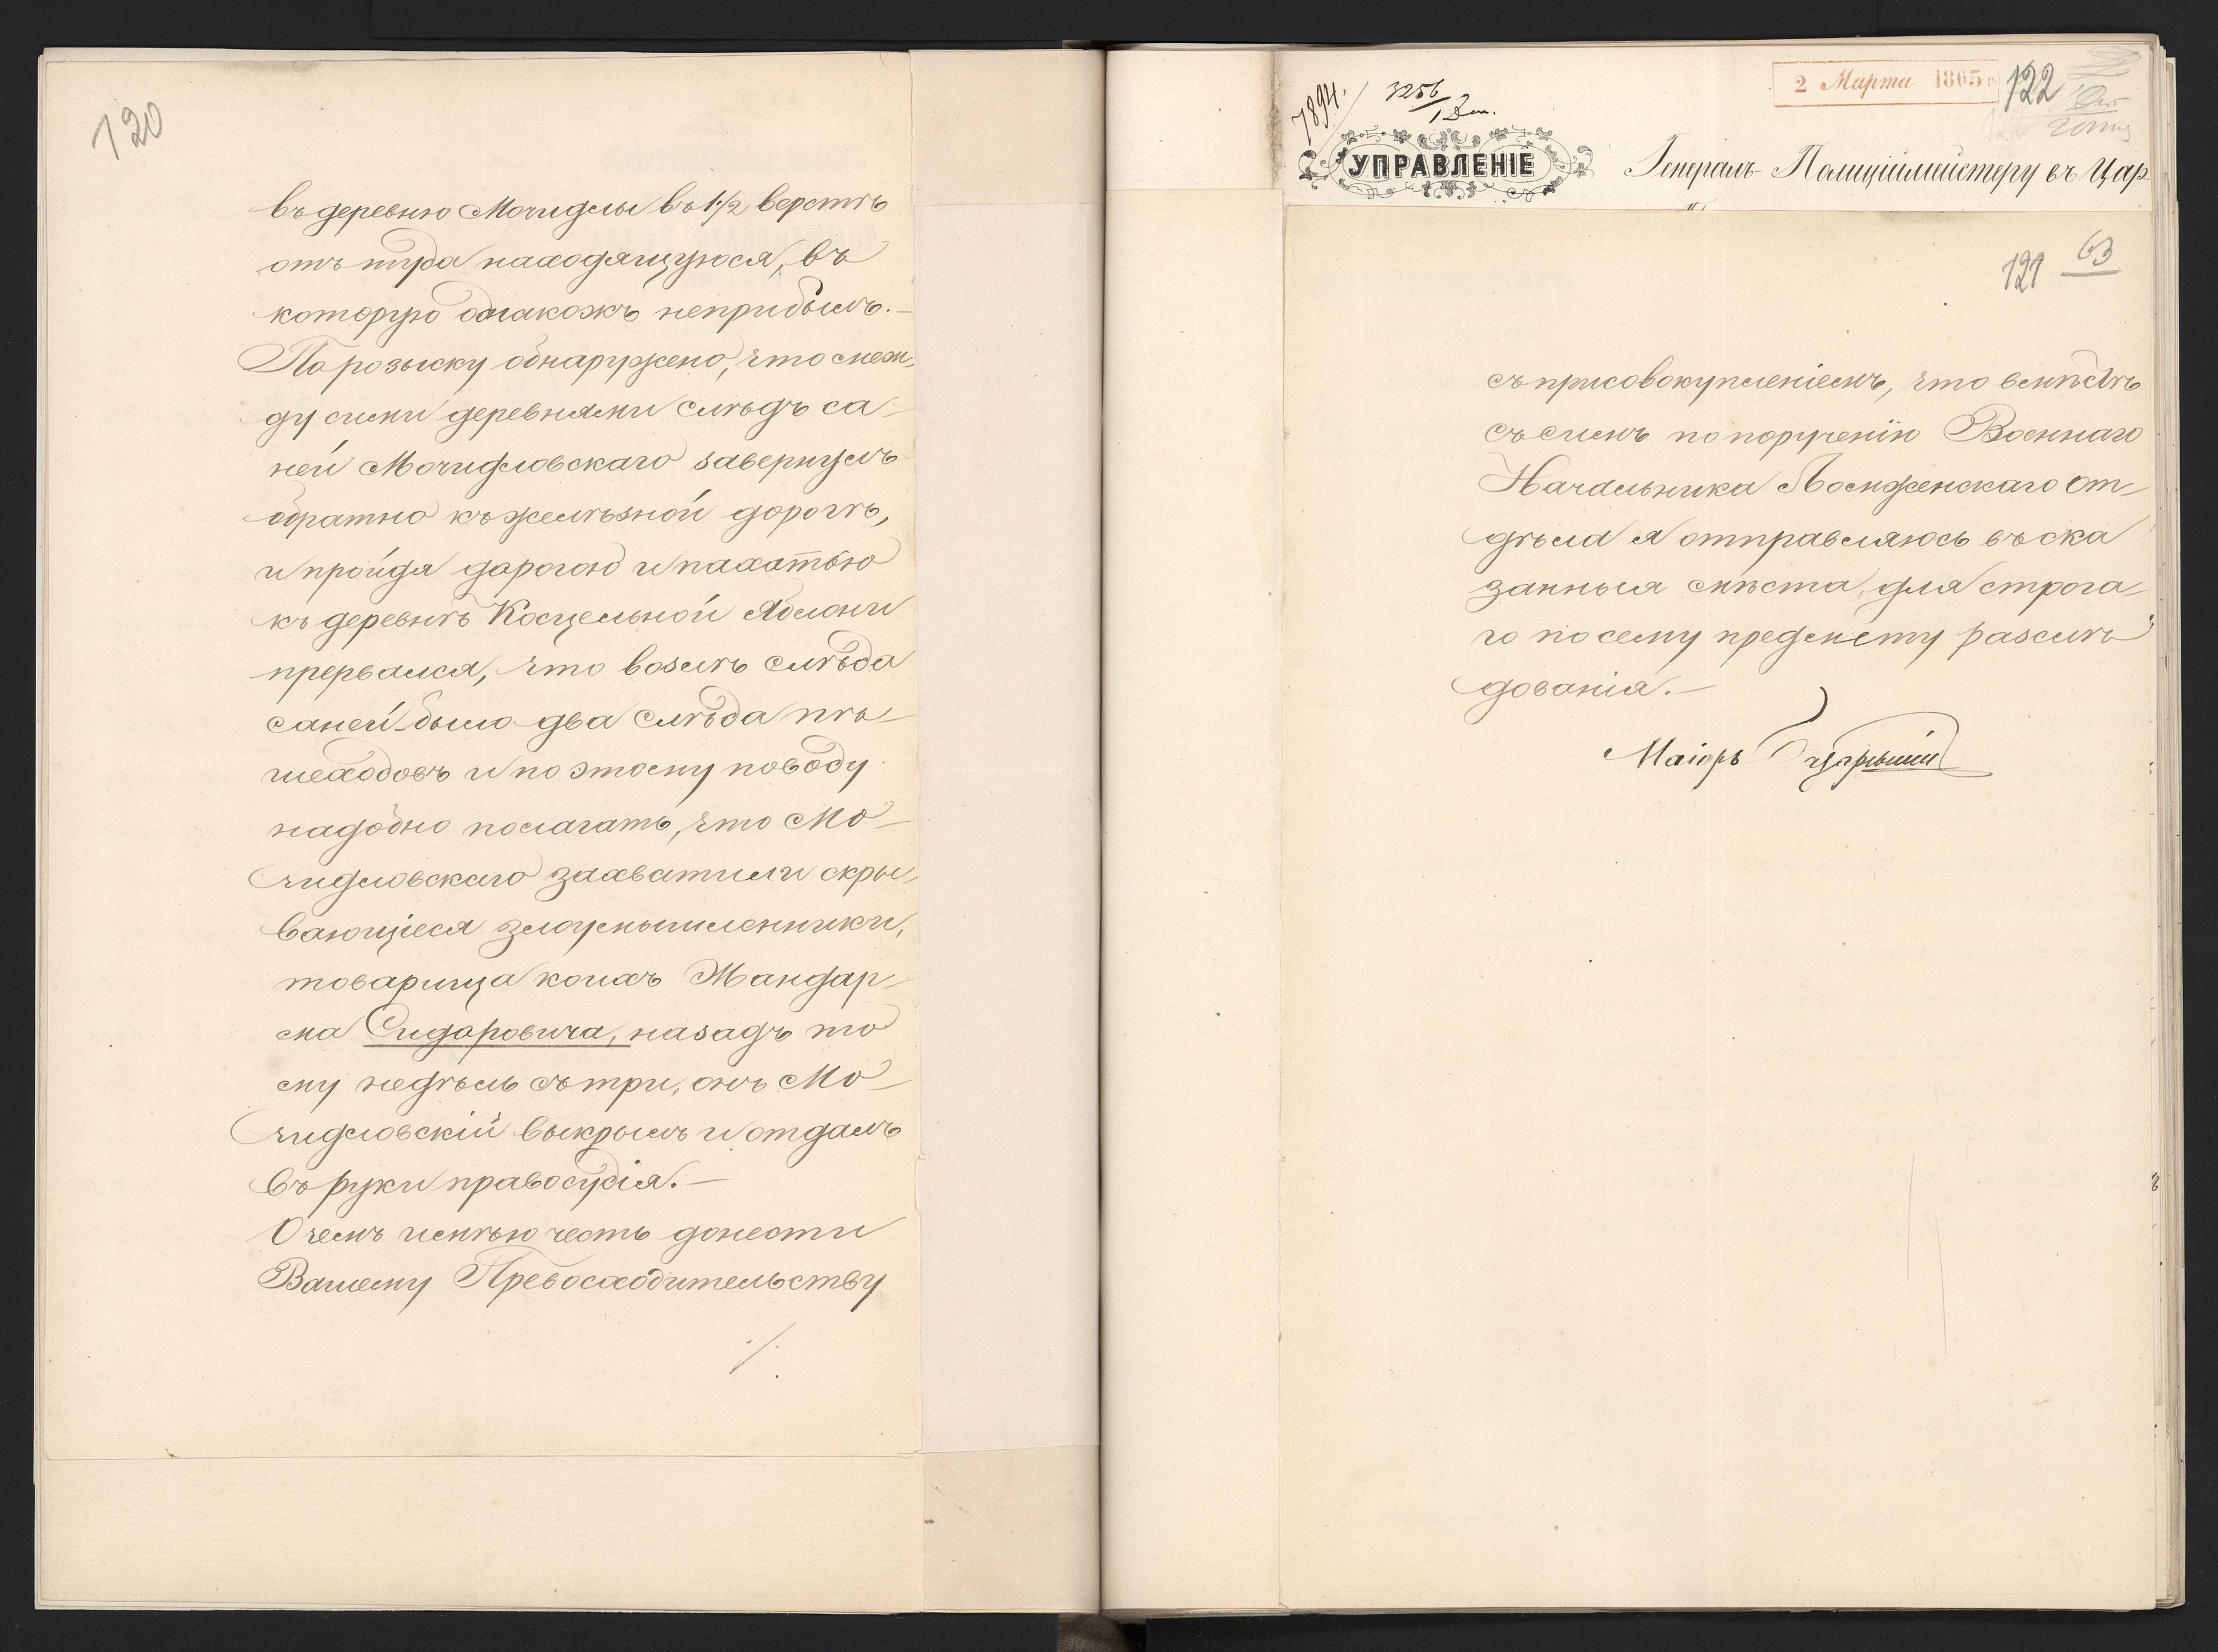 120
въ деревню Мочидлы въ 1½ верстѣ
отъ туда находящуюся, въ
которую однакожъ неприбылъ.-
По розыску обнаружено, что меж-
ду сими деревнями слѣдъ са-
ней Мочидловскаго завернулъ
обратно къ желѣзной дорогѣ,
и пройдя дорогою и пахатью
къ деревнѣ Косцельной Яблони
прервался, что возлѣ слѣда
саней было два слѣда пѣ-
шеходовъ и по этому поводу
надобно полагать, что Мо-
чидловскаго захватили скры-
вающіеся злоумышленники,
товарища коихъ Жандар-
ма Сидоровича, назадъ то
му недѣль съ три, онъ Мо-
чидловскій выкрылъ и отдалъ
въ руки правосудія.-
О чемъ имѣю честь донести
Вашему Превосходительству
./.
7894.
3256
2 Марта 1865 г.
122
УПРАВЛЕНІЕ
Генералъ-Полиціймейстеру въ Цар
121 63
съ присовокупленіемъ, что вмѣстѣ
съ симъ по порученію Военнаго
Начальника Ломженскаго От-
дѣла я отправляюсь въ ска
занныя мѣста, для строга-
го по сему предмету разслѣ
дованія.-
Маіоръ